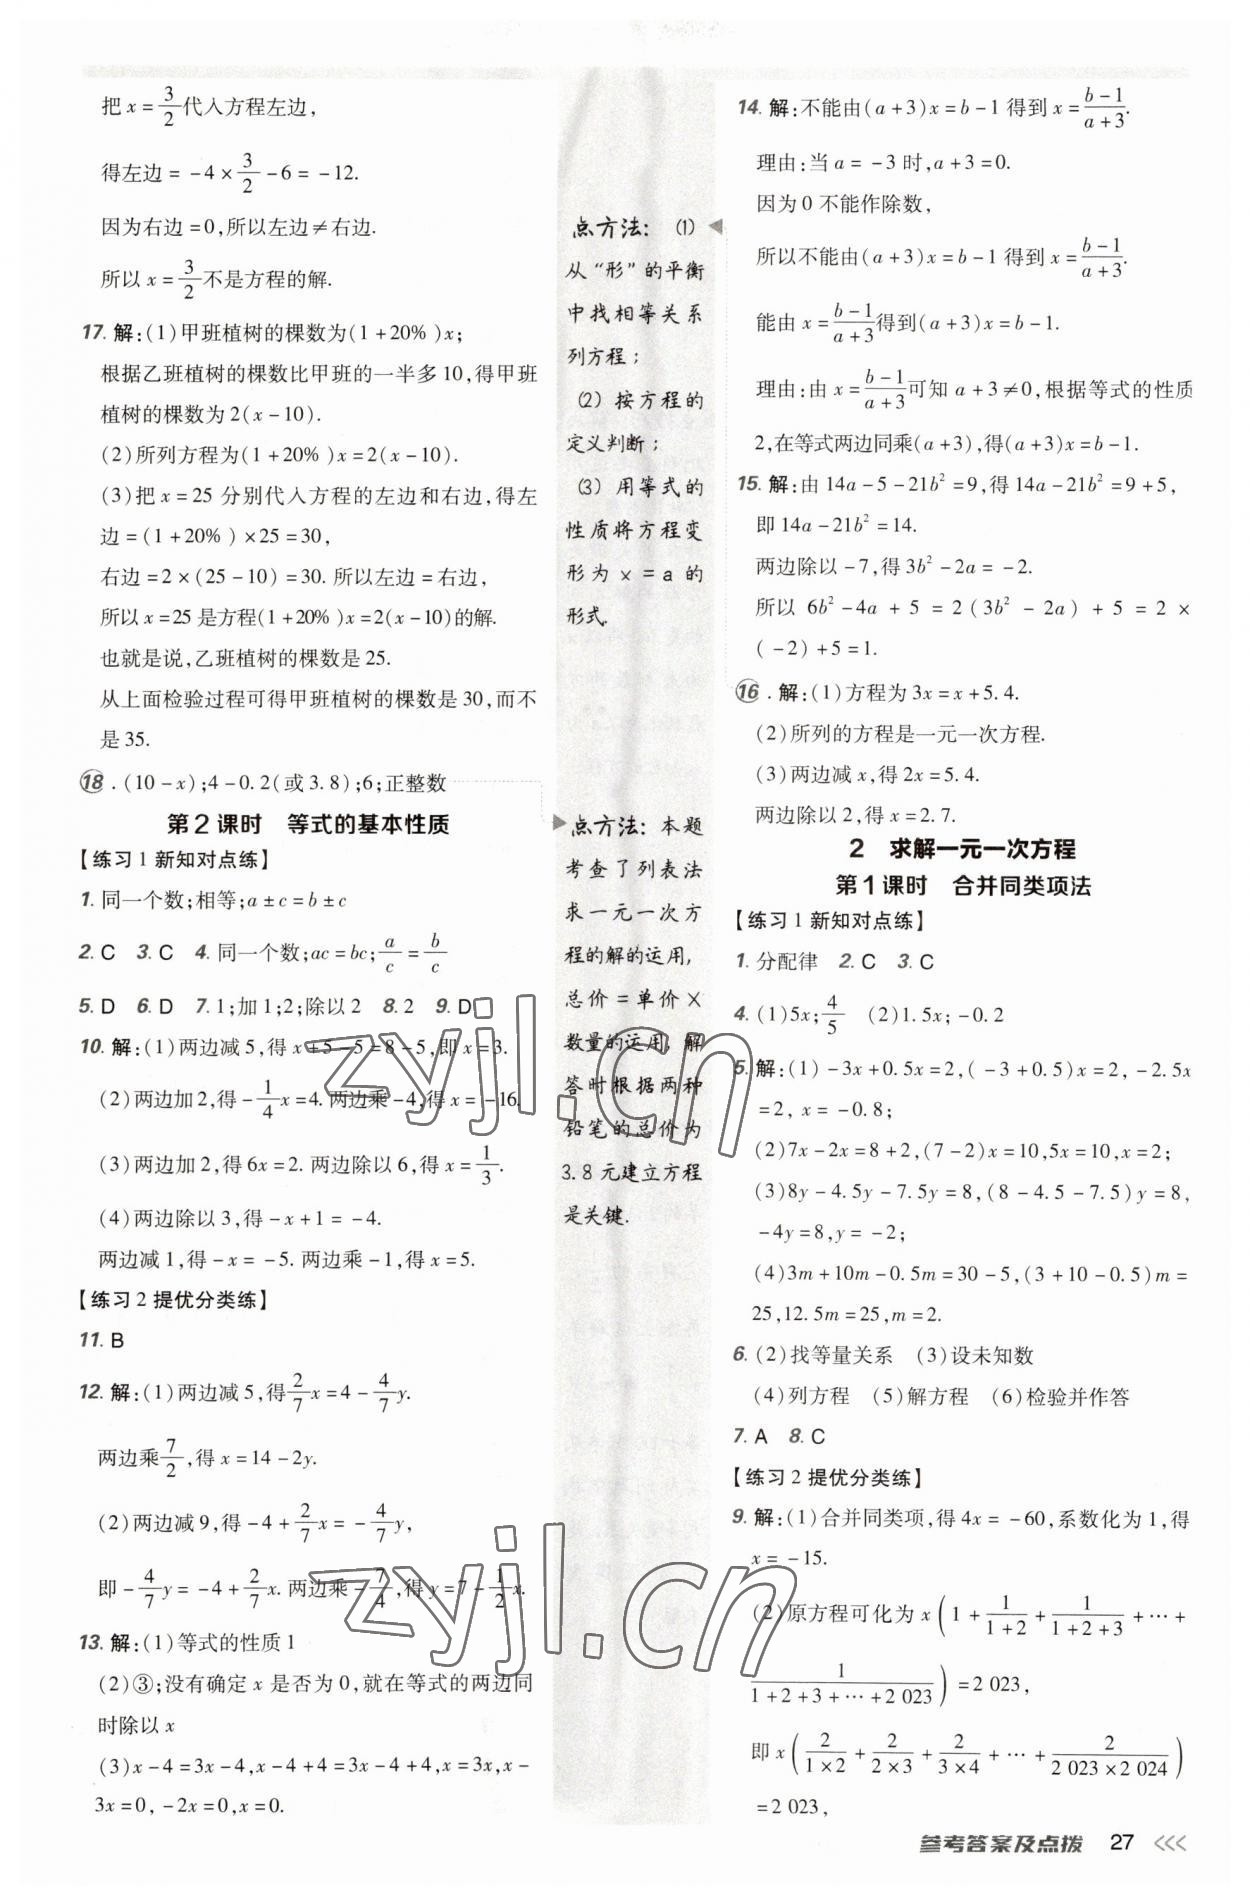 把 x=3/2代入方程左边，
得左边=-4×3/2-6=-12.
因为右边=0，所以左边≠右边.
所以 x=3/2不是方程的解.
17. 解：(1)甲班植树的棵数为(1+20%)x；
根据乙班植树的棵数比甲班的一半多10，得甲班
植树的棵数为2(x-10).
(2)所列方程为(1+20%)x=2(x-10).
(3)把 x=25 分别代入方程的左边和右边，得左
边=(1+20%)×25=30，
右边=2×(25-10)=30. 所以左边=右边，
所以 x=25 是方程(1+20%)x=2(x-10)的解.
也就是说，乙班植树的棵数是25.
从上面检验过程可得甲班植树的棵数是30，而不
是35.
⑱. (10-x)；4-0.2(或3.8)；6；正整数
第2课时 等式的基本性质
【练习1 新知对点练】
1. 同一个数；相等；a±c=b±c
2. C 3. C 4. 同一个数；ac=bc；a/c=b/c
5. D 6. D 7. 1；加1；2；除以2 8. 2 9. D
10. 解：(1)两边减5，得x+5-5=8-5，即x=3.
(2)两边加2，得-1/4x=4. 两边乘-4，得x=-16.
(3)两边加2，得6x=2. 两边除以6，得x=1/3.
(4)两边除以3，得-x+1=-4.
两边减1，得-x=-5. 两边乘-1，得x=5.
【练习2 提优分类练】
11. B
12. 解：(1)两边减5，得2/7x=4-4/7y.
两边乘7/2，得 x=14-2y.
(2)两边减9，得-4+2/7x=-4/7y，
即-4/7y=-4+2/7x. 两边乘-7/4，得y=7-1/2x.
13. 解：(1)等式的性质1
(2)③；没有确定 x 是否为0，就在等式的两边同
时除以 x
(3)x-4=3x-4，x-4+4=3x-4+4，x=3x，x-
3x=0，-2x=0，x=0.
点方法：(1)
从“形”的平衡
中找相等关系
列方程；
(2)按方程的
定义判断；
(3)用等式的
性质将方程变
形为x=a的
形式.
点方法：本题
考查了列表法
求一元一次方
程的解的运用，
总价=单价×
数量的运用，解
答时根据两种
铅笔的总价为
3.8元建立方程
是关键.
14. 解：不能由(a+3)x=b-1 得到 x=b-1/a+3.
理由：当 a=-3时，a+3=0.
因为0 不能作除数，
所以不能由(a+3)x=b-1 得到 x=b-1/a+3.
能由 x=b-1/a+3得到(a+3)x=b-1.
理由：由 x=b-1/a+3可知 a+3≠0，根据等式的性质
2，在等式两边同乘(a+3)，得(a+3)x=b-1.
15. 解：由14a-5-21b²=9，得14a-21b²=9+5，
即14a-21b²=14.
两边除以-7，得3b²-2a=-2.
所以 6b²-4a+5=2(3b²-2a)+5=2×
(-2)+5=1.
⑯. 解：(1)方程为3x=x+5.4.
(2)所列的方程是一元一次方程.
(3)两边减x，得2x=5.4.
两边除以2，得 x=2.7.
2 求解一元一次方程
第1课时 合并同类项法
【练习1 新知对点练】
1. 分配律 2. C 3. C
4. (1)5x；4/5 (2)1.5x；-0.2
5. 解：(1)-3x+0.5x=2，(-3+0.5)x=2，-2.5x
=2，x=-0.8；
(2)7x-2x=8+2，(7-2)x=10，5x=10，x=2；
(3)8y-4.5y-7.5y=8，(8-4.5-7.5)y=8，
-4y=8，y=-2；
(4)3m+10m-0.5m=30-5，(3+10-0.5)m=
25，12.5m=25，m=2.
6. (2)找等量关系 (3)设未知数
(4)列方程 (5)解方程 (6)检验并作答
7. A 8. C
【练习2 提优分类练】
9. 解：(1)合并同类项，得4x=-60，系数化为1，得
x=-15.
(2)原方程可化为 x(1+1/1+2+1/1+2+3+…+
1/1+2+3+…+2 023)=2 023，
即 x(2/1×2+2/2×3+2/3×4+…+2/2 023×2 024)
=2 023，
参考答案及点拨 27
zyjl.cn
zyjl.cn